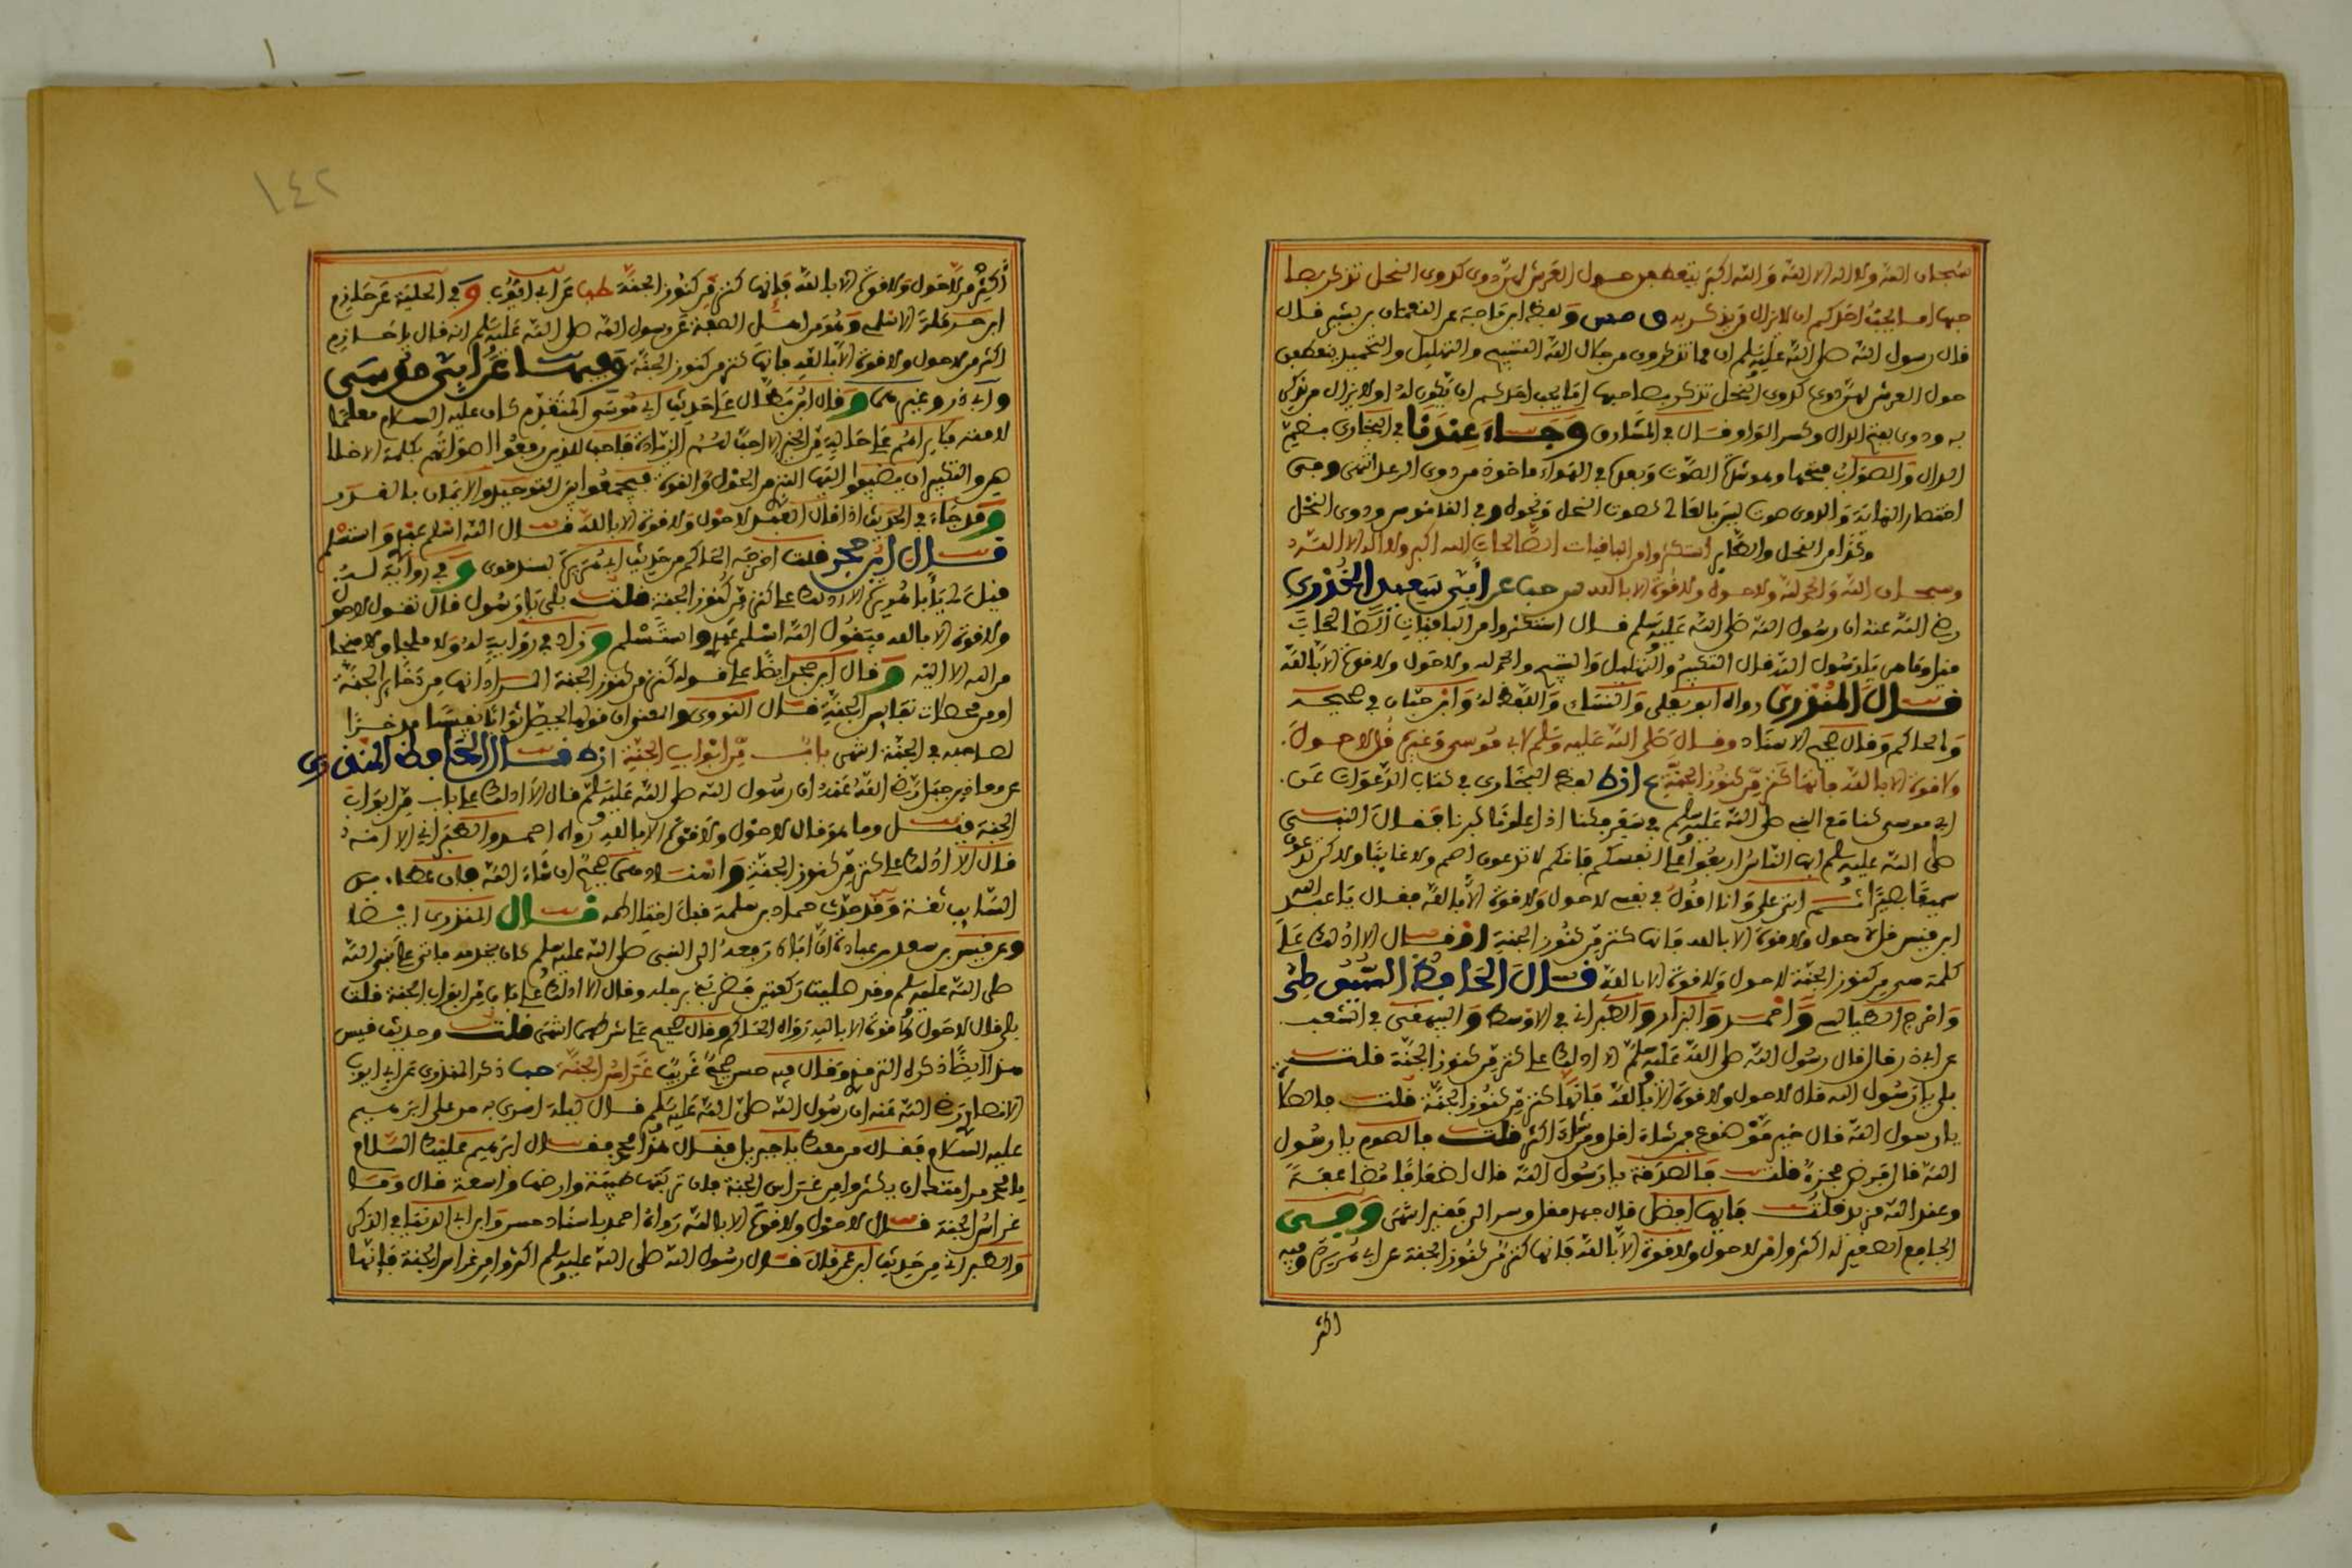 سبحان الله ولا اله الا الله والله اكبر يتعطفن حول العرش لهن دوي كدوي النحل تذكر بصا
حبها اما يحب احدكم ان لا يزال من يذكر به ولفظ ابن ماجة عن النعمان بن بشير قال
قال رسول الله صلى الله عليه وسلم ان مما تذكرون من جلال الله التسبيح والتهليل والتحميد ينعطفن
حول العرش لهن دوي كدوي النحل تذكر بصاحبها اما يحب احدكم ان يكون له او لا يزال من يذكر
به ودوي بفتح الدال وكسر الواو قال في المشارق وجاء عندنا في البخاري بضم
الدال والصواب فتحها وهو شدة الصوت وبعده في الهواء ماخوذ من دوي الرعد انتهى وفي
اختصار النهاية والدوي صوت ليس بالعالي كصوت النحل ونحوه وفي القاموس ودوي النحل
استكثروا من الباقيات الصالحات الله اكبر ولا اله الا الله
وسبحان الله والحمد لله ولا حول ولا قوة الا بالله عن أبي سعيد الخدري
رضي الله عنه ان رسول الله صلى الله عليه وسلم قال استكثروا من الباقيات الصالحات
قيل وما هي يا رسول الله قال التكبير والتهليل والتسبيح والحمد لله ولا حول ولا قوة الا بالله
قال المنذري رواه ابو يعلى والنسائي واللفظ له وابن حبان في صحيحه
والحاكم وقال صحيح الاسناد وقال صلى الله عليه وسلم لابي موسى وغيره قل لا حول
ولا قوة الا بالله فانها كنز من كنوز الجنة لفظ البخاري في كتاب الدعوات عن
ابي موسى كنا مع النبي صلى الله عليه وسلم في سفر فكنا اذا علونا كبرنا فقال النبي
صلى الله عليه وسلم ايها الناس اربعوا على انفسكم فانكم لا تدعون اصم ولا غائبا ولاكن تدعون
سميعا بصيرا ثم اتى علي وانا اقول في نفسي لا حول ولا قوة الا بالله فقال يا عبد الله
ابن قيس قل لا حول ولا قوة الا بالله فانها كنز من كنوز الجنة او قال الا ادلك على
كلمة هي من كنوز الجنة لا حول ولا قوة الا بالله قال الحافظ السيوطي
واخرج الطيالسي واحمد والبزار والطبراني في الاوسط والبيهقي في الشعب
عن ابي ذر قال قال رسول الله صلى الله عليه وسلم الا ادلك على كنز من كنوز الجنة قلت
بلى يا رسول الله قال لا حول ولا قوة الا بالله فانها كنز من كنوز الجنة قلت فالصلاة
يا رسول الله قال خير موضوع من شاء اقل ومن شاء اكثر قلت فالصوم يا رسول
الله قال فرض مجزئ قلت فالصدقة يا رسول الله قال اضعافا مضاعفة
وعند الله مزيد قلت فايها افضل قال جهد مقل وسر الى فقير انتهى وفي
الجامع الصغير له اكثروا من لا حول ولا قوة الا بالله فانها كنز من كنوز الجنة عن ابي هريرة وفيه
اكثر
١٤٢
أكثر من لا حول ولا قوة الا بالله فإنها كنز من كنوز الجنة عن ابي ايوب وفي الحلية عن حازم
ابن حرملة الاسلمي وهو من اهل الصفة عن رسول الله صلى الله عليه وسلم انه قال يا حازم
اكثر من لا حول ولا قوة الا بالله فانها كنز من كنوز الجنة وفيها عن أبي موسى
وابي ذر وغيرهما وقال ابن بطال على حديث ابي موسى المتقدم كان عليه السلام معلما
لامته فلا يراهم على حالة من الخير الا احب لهم الزيادة فاحب للذين رفعوا اصواتهم بكلمة الاخلا
ص والتكبير ان يضيفوا اليها التبري من الحول والقوة فيجمعوا بين التوحيد والايمان بالقدر
وقد جاء في الحديث اذا قال العبد لا حول ولا قوة الا بالله قال الله اسلم عبدي واستسلم
قال ابن حجر قلت اخرجه الحاكم من حديث ابي هريرة بسند قوي وفي رواية له
قيل لي يا با هريرة الا ادلك على كنز من كنوز الجنة قلت بلى يا رسول قال تقول لا حول
ولا قوة الا بالله فيقول الله اسلم عبدي واستسلم وزاد في رواية له ولا ملجا ولا منجا
من الله الا اليه وقال ابن حجر ايضا على قوله كنز من كنوز الجنة المراد انها من ذخائر الجنة
او من محصلات نفايس الجنة قال النووي والمعنى ان قولها يحصل ثوابا نفيسا مدخرا
لصاحبه في الجنة انتهى باب من ابواب الجنة قال الحافظ المنذري
عن معاذ بن جبل رضي الله عنه ان رسول الله صلى الله عليه وسلم قال الا ادلك على باب من ابواب
الجنة قيل وما هو قال لا حول ولا قوة الا بالله رواه احمد والطبراني الا انه
قال الا ادلك على كنز من كنوز الجنة واسناده صحيح ان شاء الله فان عطاء بن
السائب ثقة وقد حدث حماد بن سلمة قبل اختلاطه قال المنذري ايضا
وعن قيس بن سعد بن عبادة ان اباه دفعه الى النبي صلى الله عليه وسلم كان يخدمه فاتى على نبي الله
صلى الله عليه وسلم وقد صليت ركعتين فضربني برجله وقال الا ادلك على باب من ابواب الجنة قلت
بلى قال لا حول ولا قوة الا بالله رواه الحاكم وقال صحيح على شرطهما انتهى قلت وحديث قيس
هذا ايضا ذكره الترمذي وقال فيه حسن صحيح غريب غراس الجنة ذكر المنذري عن ابي ايوب
الانصاري رضي الله عنه ان رسول الله صلى الله عليه وسلم قال ليلة اسري به مر على ابرهيم
عليه السلام فقال من معك يا جبريل فقال هذا محمد فقال ابرهيم عليك السلام
يا محمد مر امتك ان يكثروا من غراس الجنة فان تربتها طيبة وارضها واسعة قال وما
غراس الجنة قال لا حول ولا قوة الا بالله رواه احمد باسناد حسن وابن ابي الدنيا في الذكر
والطبراني من حديث ابن عمر قال قال رسول الله صلى الله عليه وسلم اكثروا من غراس الجنة فإنها